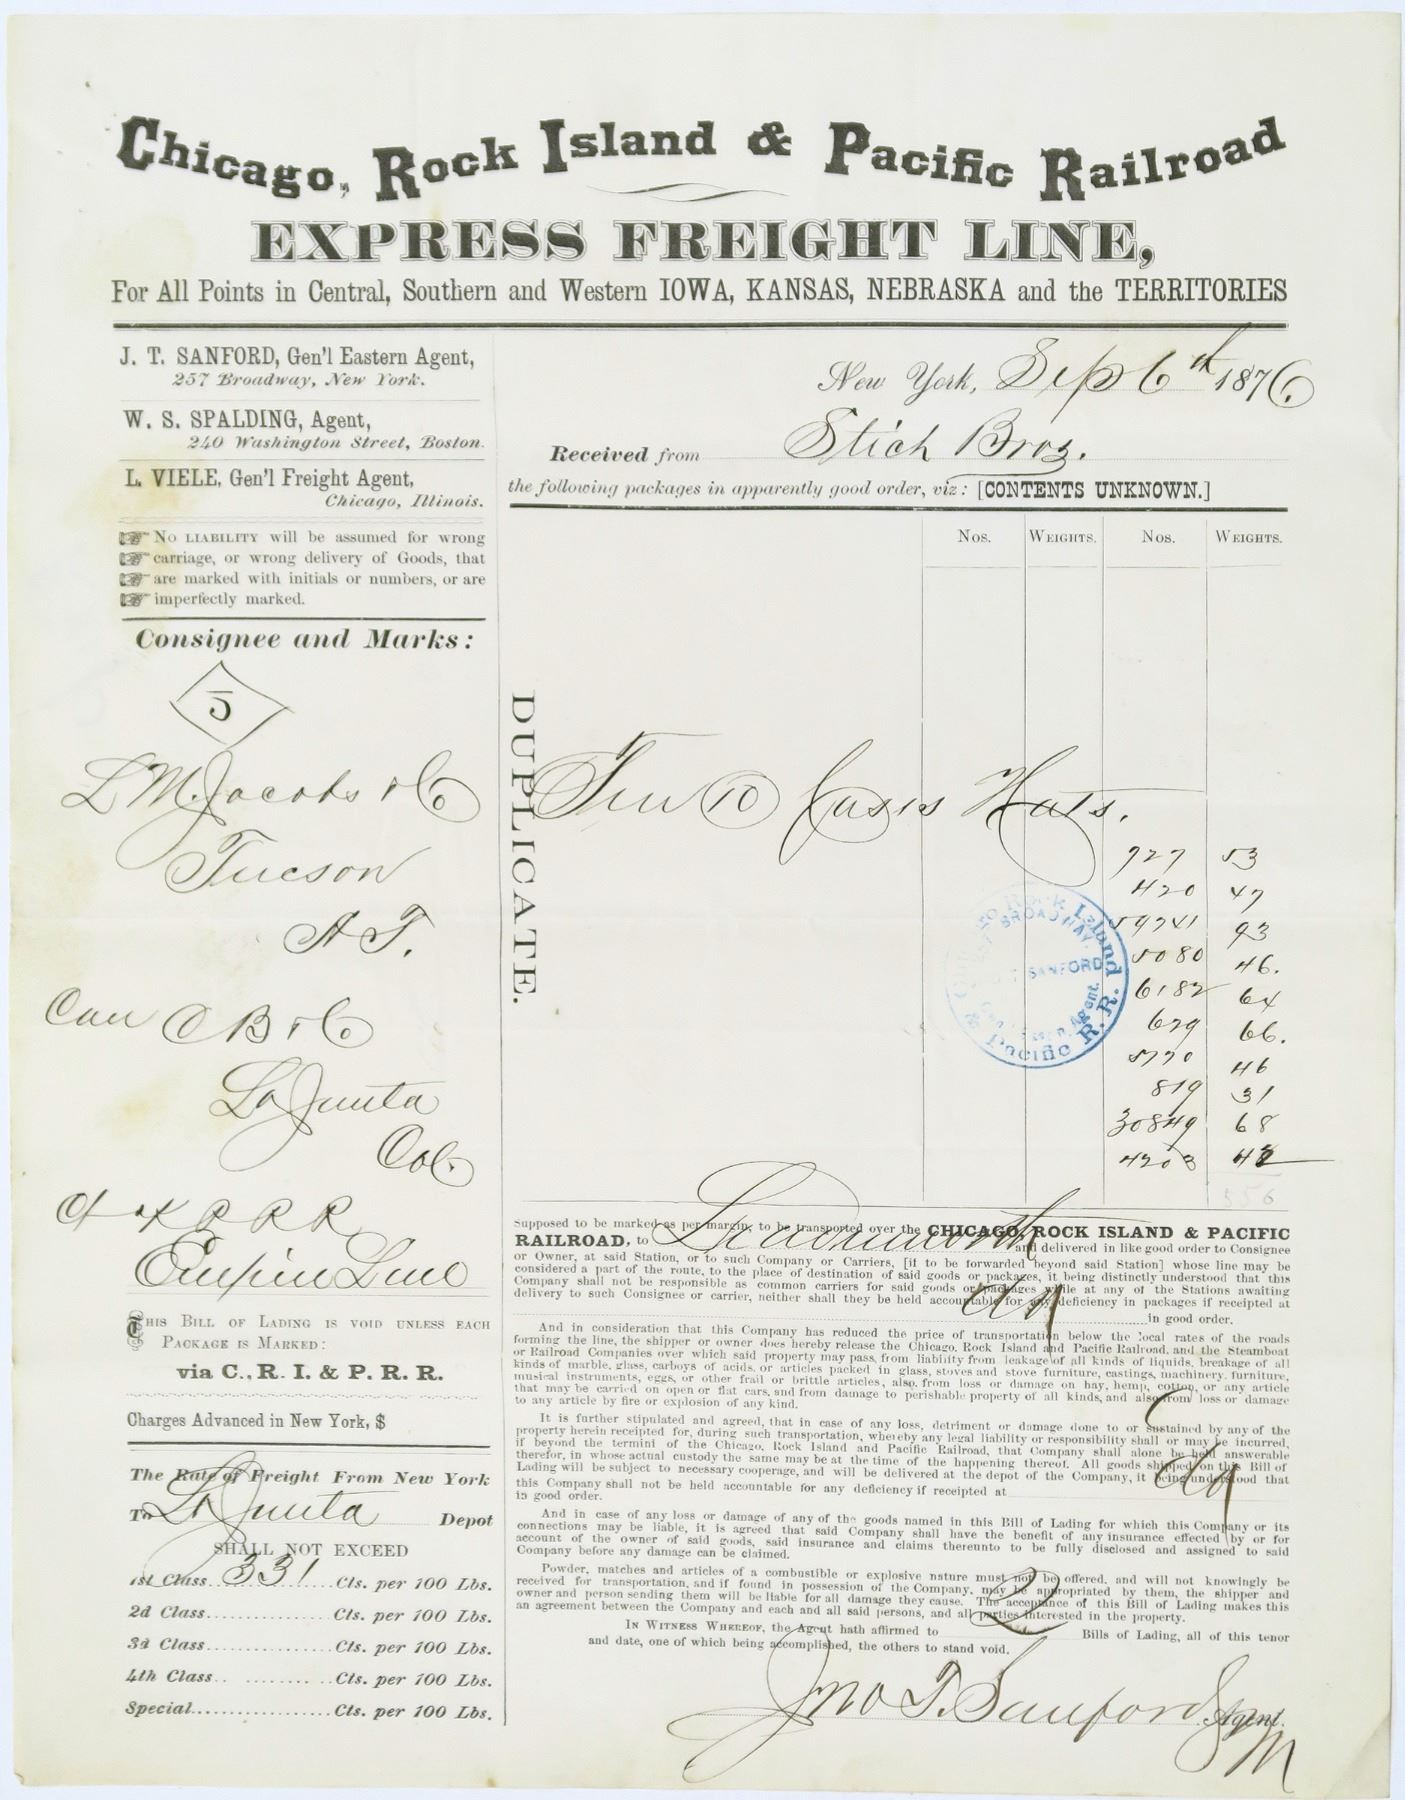 Chicago, Rock Island & Pacific Railroad
EXPRESS FREIGHT LINE,
For All Points in Central, Southern and Western IOWA, KANSAS, NEBRASKA and the TERRITORIES
J. T. SANFORD, Gen'l Eastern Agent,
257 Broadway, New York.
W. S. SPALDING, Agent,
240 Washington Street, Boston.
L. VIELE, Gen'l Freight Agent,
Chicago, Illinois.
No LIABILITY will be assumed for wrong
carriage, or wrong delivery of Goods, that
are marked with initials or numbers, or are
imperfectly marked.
Consignee and Marks:
5
L M. Jacobs & Co
Tucson
A T.
Care O B & Co
La Junta
Col.
R R R
Empire Line
THIS BILL OF LADING IS VOID UNLESS EACH
PACKAGE IS MARKED:
via C., R. I. & P. R. R.
Charges Advanced in New York, $
The Rate of Freight From New York
To La Junta Depot
SHALL NOT EXCEED
1st Class 331 Cts. per 100 Lbs.
2d Class Cts. per 100 Lbs.
3d Class Cts. per 100 Lbs.
4th Class Cts. per 100 Lbs.
Special Cts. per 100 Lbs.
New York, Sep 6th 1876.
Received from Stich Bros.
the following packages in apparently good order, viz: [CONTENTS UNKNOWN.]
NOS. WEIGHTS. NOS. WEIGHTS.
DUPLICATE.
Ten 10 Cases Hats.
927 53
420 47
59741 93
5080 46.
6182 64
679 66.
5770 46
819 31
30849 68
4203 42
556
Chicago Rock Island & Pacific R. R.
BROADWAY.
SANFORD
Agent.
Supposed to be marked as per margin, to be transported over the CHICAGO, ROCK ISLAND & PACIFIC
RAILROAD, to Leavenworth and delivered in like good order to Consignee
or Owner, at said Station, or to such Company or Carriers, [if to be forwarded beyond said Station] whose line may be
considered a part of the route, to the place of destination of said goods or packages, it being distinctly understood that this
Company shall not be responsible as common carriers for said goods or packages while at any of the Stations awaiting
delivery to such Consignee or carrier, neither shall they be held accountable for any deficiency in packages if receipted at
in good order.
And in consideration that this Company has reduced the price of transportation below the local rates of the roads
forming the line, the shipper or owner does hereby release the Chicago, Rock Island and Pacific Railroad, and the Steamboat
or Railroad Companies over which said property may pass, from liability from leakage of all kinds of liquids, breakage of all
kinds of marble, glass, carboys of acids, or articles packed in glass, stoves and stove furniture, castings, machinery, furniture,
musical instruments, eggs, or other frail or brittle articles, also, from loss or damage on hay, hemp, cotton, or any article
that may be carried on open or flat cars, and from damage to perishable property of all kinds, and also from loss or damage
to any article by fire or explosion of any kind.
It is further stipulated and agreed, that in case of any loss, detriment or damage done to or sustained by any of the
property herein receipted for, during such transportation, whereby any legal liability or responsibility shall or may be incurred,
if beyond the termini of the Chicago, Rock Island and Pacific Railroad, that Company shall alone be held answerable
therefor, in whose actual custody the same may be at the time of the happening thereof. All goods shipped on this Bill of
Lading will be subject to necessary cooperage, and will be delivered at the depot of the Company, it being understood that
this Company shall not be held accountable for any deficiency if receipted at
in good order.
And in case of any loss or damage of any of the goods named in this Bill of Lading for which this Company or its
connections may be liable, it is agreed that said Company shall have the benefit of any insurance effected by or for
account of the owner of said goods, said insurance and claims thereunto to be fully disclosed and assigned to said
Company before any damage can be claimed.
Powder, matches and articles of a combustible or explosive nature must not be offered, and will not knowingly be
received for transportation, and if found in possession of the Company, may be appropriated by them, the shipper and
owner and person sending them will be liable for all damage they cause. The acceptance of this Bill of Lading makes this
an agreement between the Company and each and all said persons, and all parties interested in the property.
IN WITNESS WHEREOF, the Agent hath affirmed to 2 Bills of Lading, all of this tenor
and date, one of which being accomplished, the others to stand void.
Jno T. Sanford Agent.